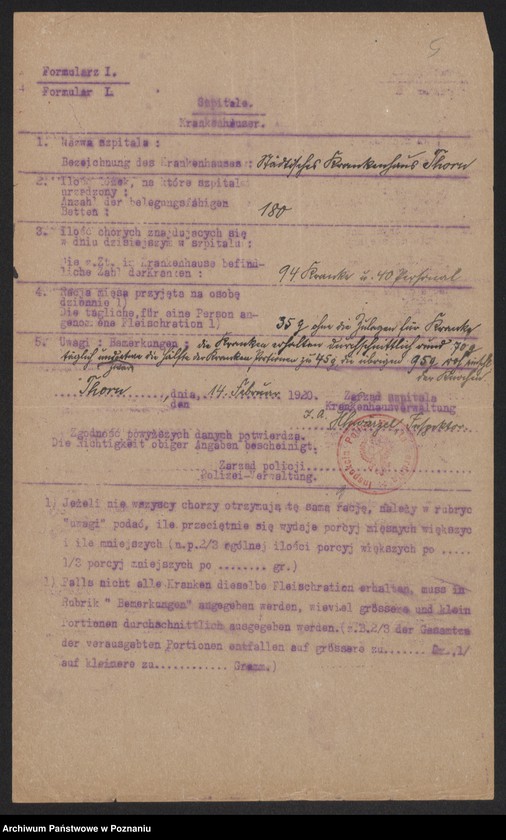 Formularz I.
Formular I.
Szpitale.
Krankenhäuser.
1. Nazwa szpitala :
Bezeichnung des Krankenhauses : Städtisches Krankenhaus Thorn
2. Ilość łóżek, na które szpital
urządzony :
Anzahl der belegungsfähigen
Betten : 180
3. Ilość chorych znajdujących się
w dniu dzisiejszym w szpitalu :
Die z.Zt. im Krankenhause befind-
liche Zahl derKranken : 94 Kranke u. 40 Personal
4. Racja mięsa przyjęta na osobę
dziennie 1)
Die tägliche, für eine Person an-
genommene Fleischration 1) 35 g ohne die Zulagen für Kranke
5. Uwagi : Bemerkungen : die Kranken erhalten durchschnittlich rund 70 g
täglich die Hälfte der Kranken Portionen zu 45 g die übrigen 95 g
der Kranken
Thorn, dnia, 14. Februar 1920.
den
Zarząd szpitala
Krankenhausverwaltung
I. A. Inspektor.
Zgodność powyższych danych potwierdza.
Die Richtigkeit obiger Angaben bescheinigt.
Zarząd policji
Polizei-Verwaltung.
1) Jeżeli nie wszyscy chorzy otrzymują tę samą rację, należy w rubryce
"uwagi" podać, ile przeciętnie się wydaje porcyj mięsnych większych
i ile mniejszych (n.p. 2/3 ogólnej ilości porcyj większych po .....
1/3 porcyj mniejszych po ........ gr.)
1) Falls nicht alle Kranken dieselbe Fleischration erhalten, muss in
Rubrik " Bemerkungen" angegeben werden, wieviel grössere und klein
Portionen durchschnittlich ausgegeben werden.(z.B.2/3 der Gesamten
der verausgabten Portionen entfallen auf grössere zu....... Gr.,1/
auf kleinere zu............ Gramm.)
Archiwum Państwowe w Poznaniu